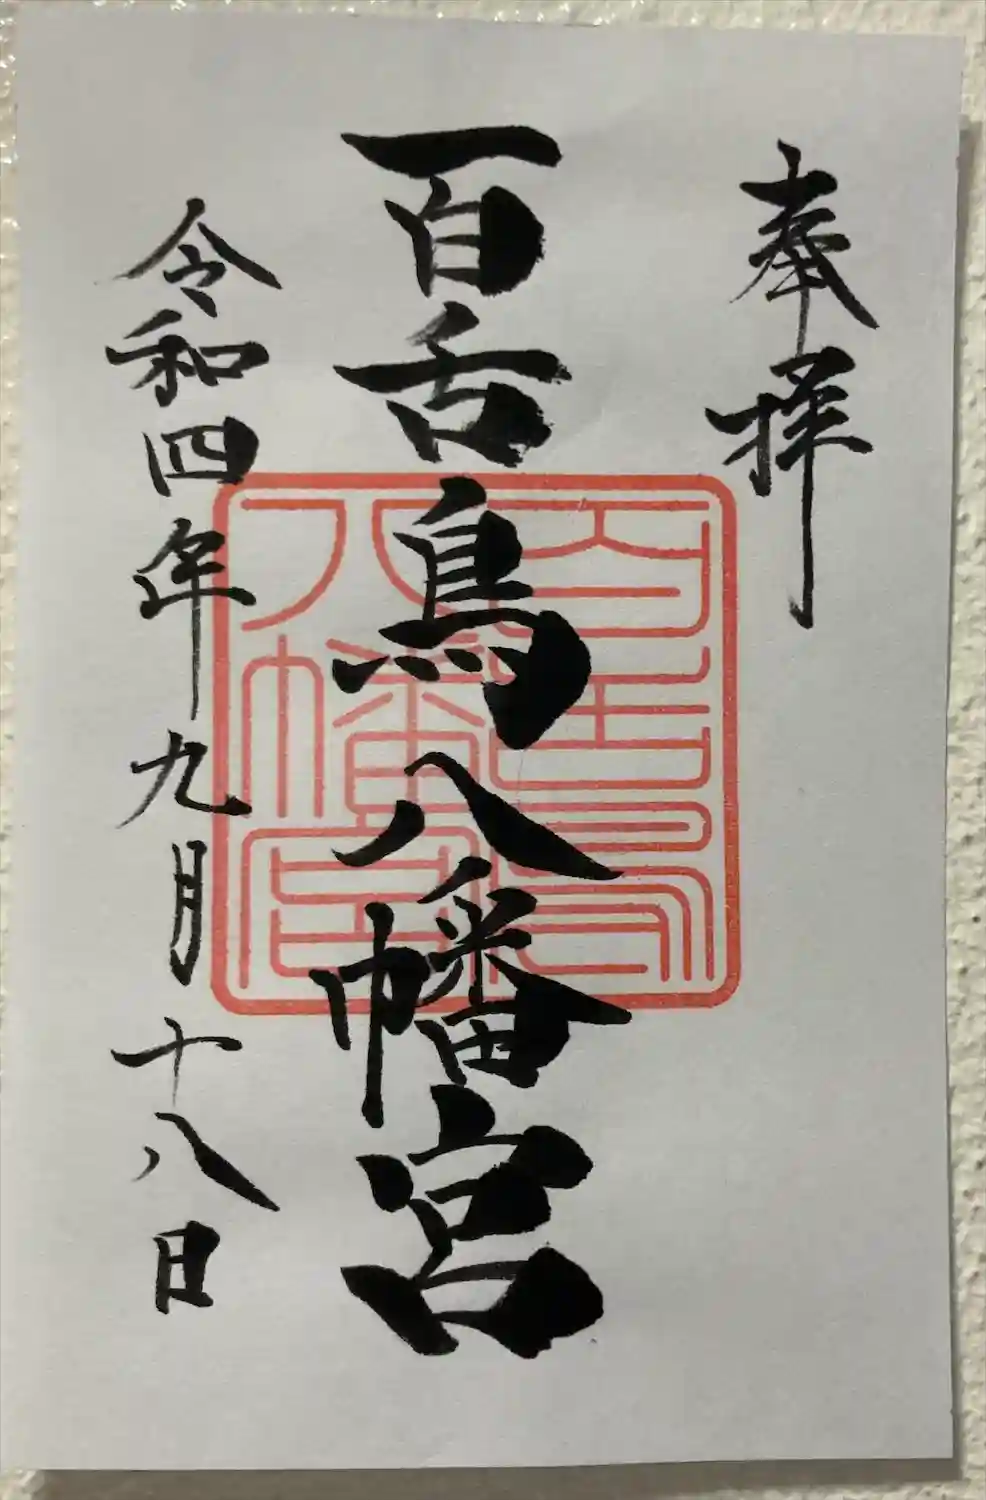 奉拝
百舌鳥八幡宮
百舌鳥
八幡宮
令和四年九月十八日